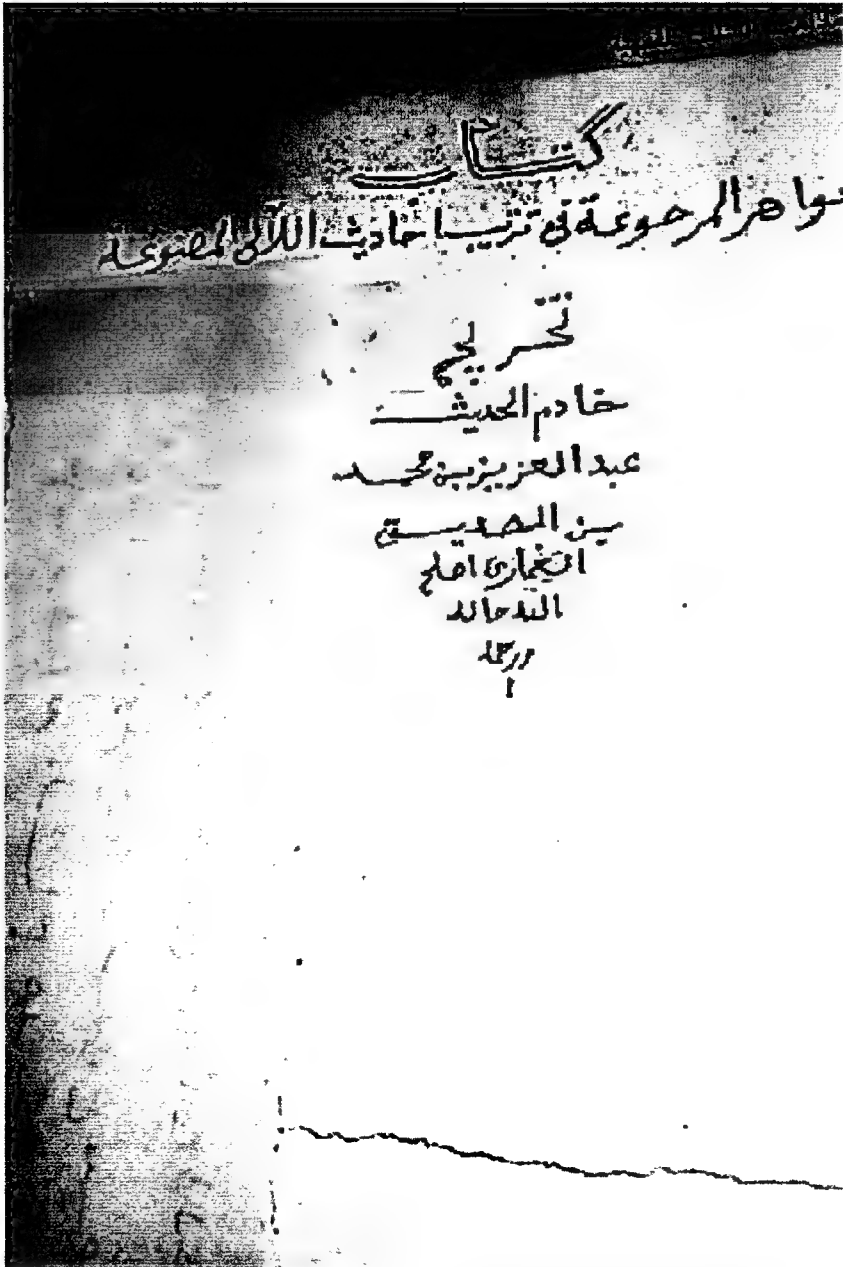 كتاب
واهر المرصوعة في ترتيب أحاديث اللآلى المصنوعة
تخريج
خادم الحديث
عبد العزيز بن محمد
بن الصديق
الغماري اصلح
الله حاله
ورحمه
ا